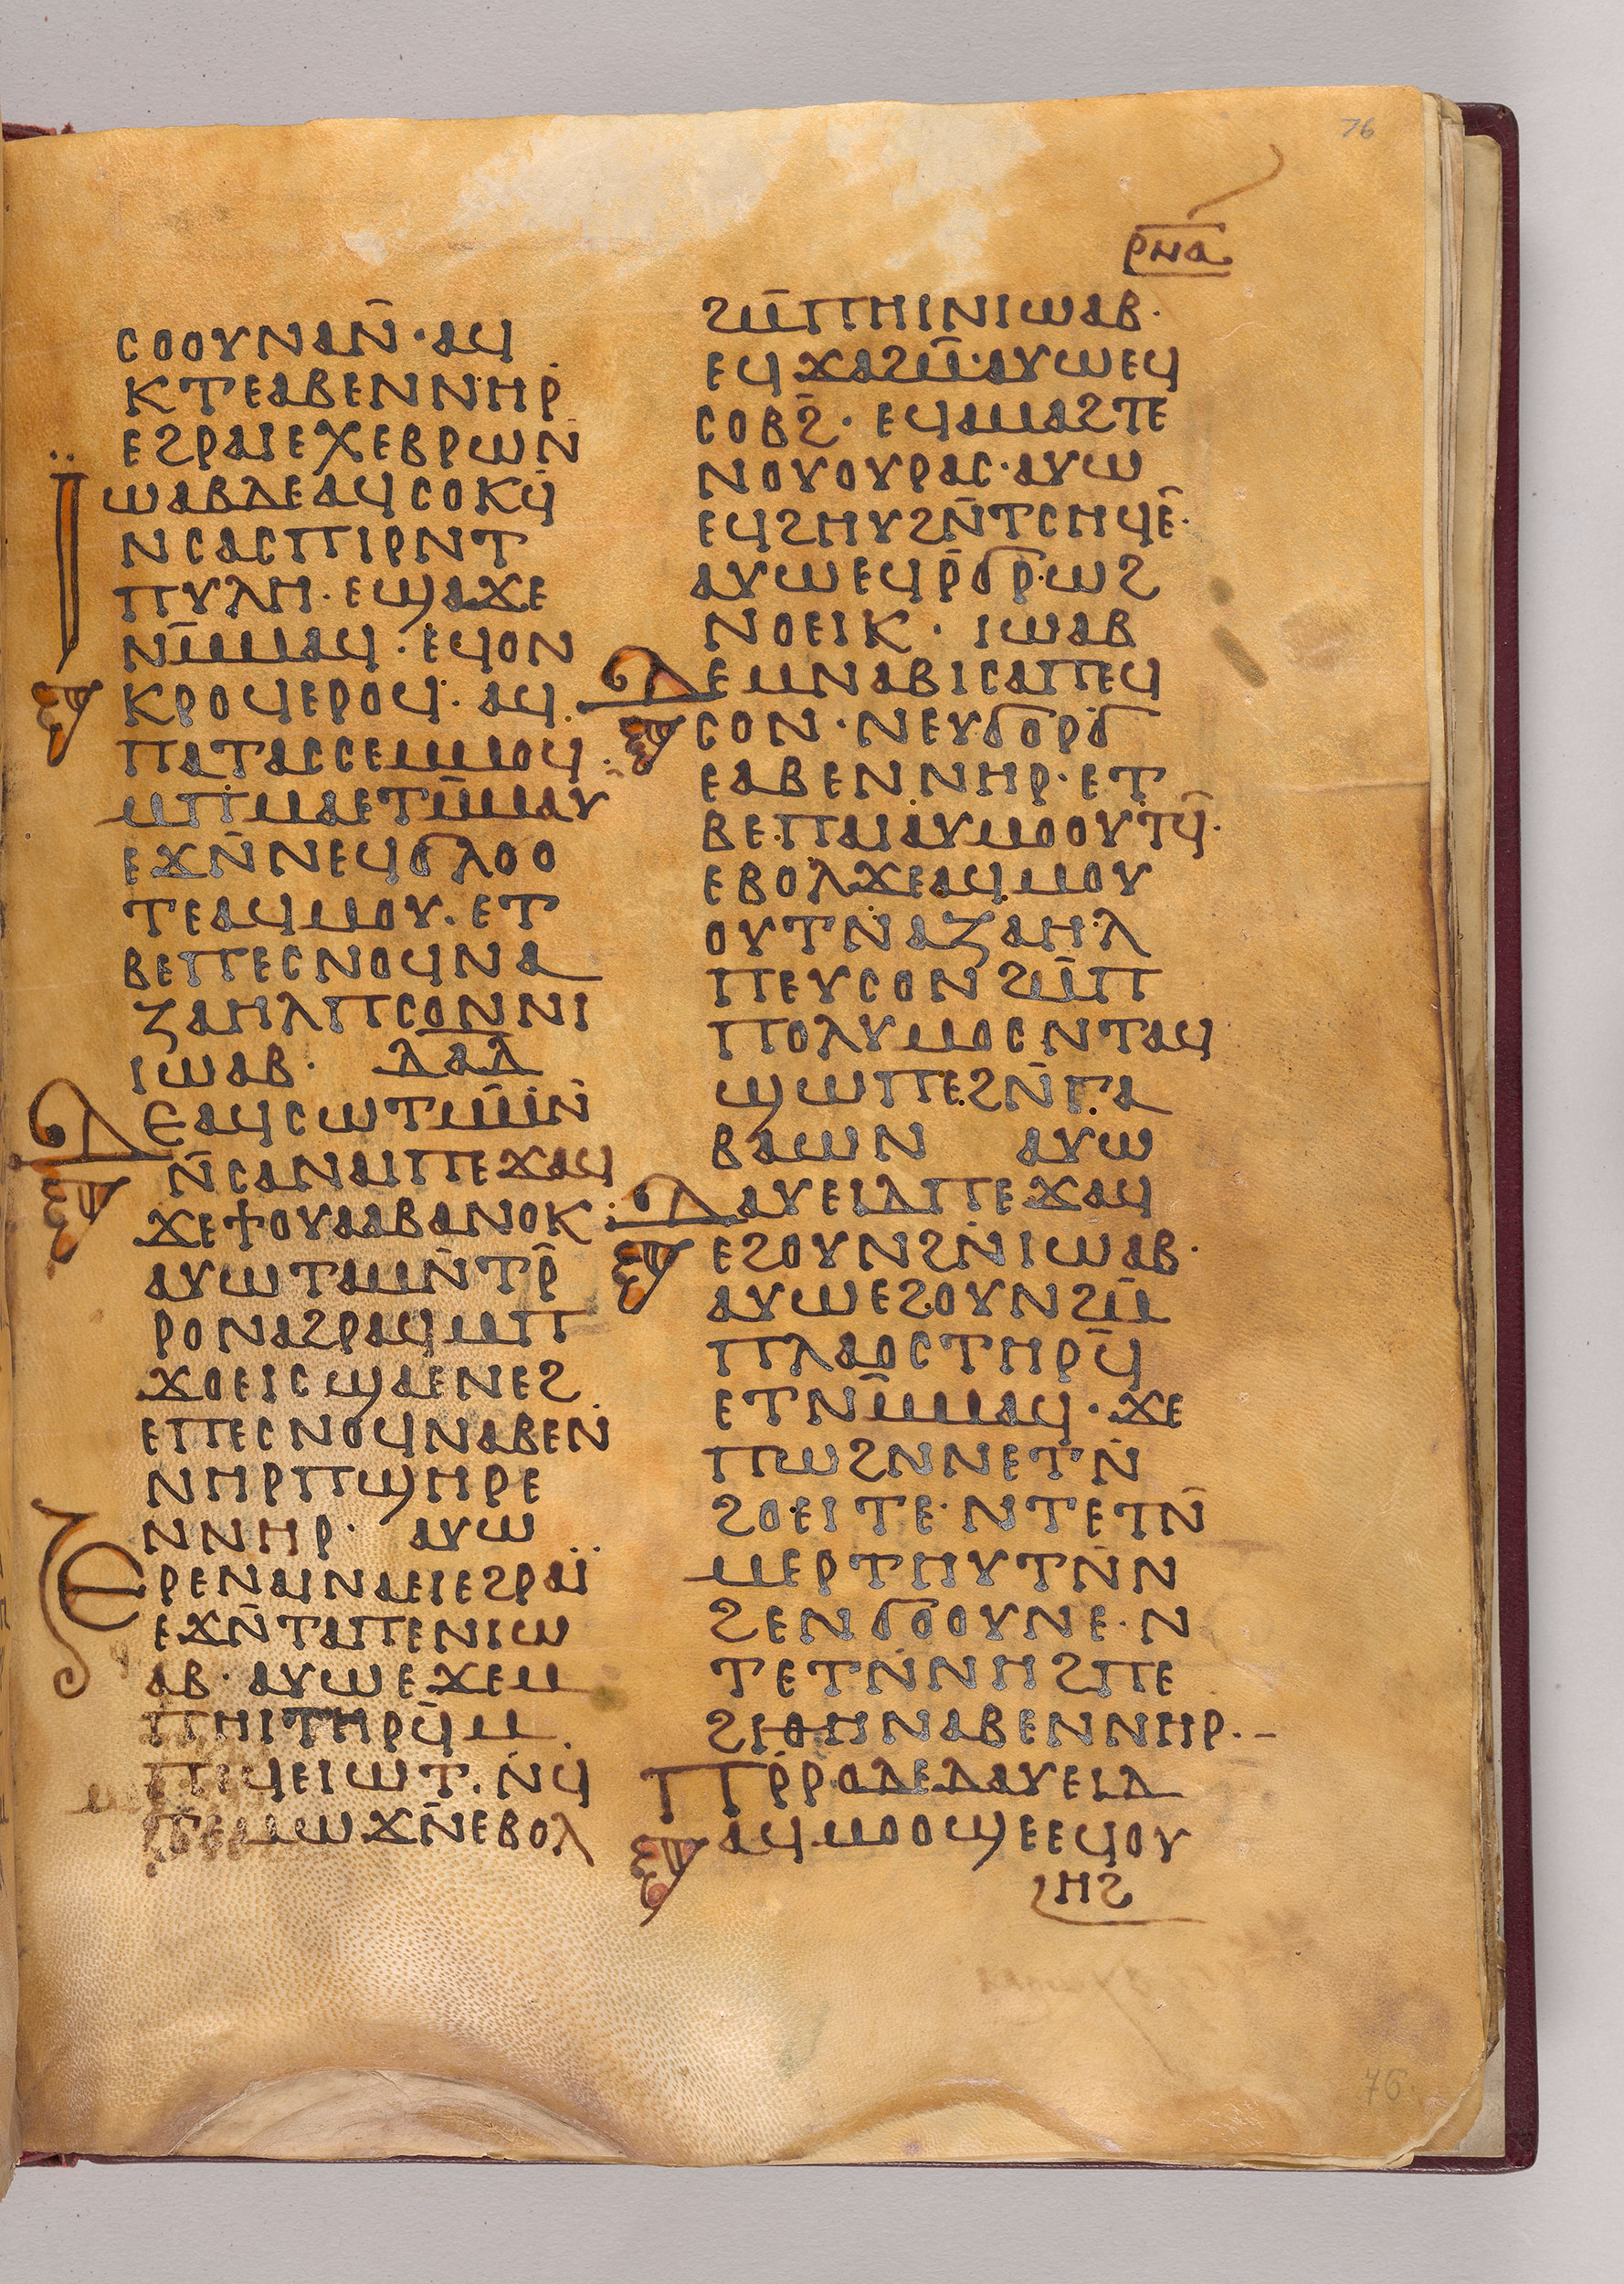 76
ⲣⲛⲁ
ⲥⲟⲟⲩⲛⲁⲛ̄·ⲁϥ
ⲕⲧⲉⲁⲃⲉⲛⲛⲏⲣ
ⲉϩⲣⲁⲓⲉⲭⲉⲃⲣⲱⲛ
Ⲓ̈ⲱⲁⲃⲇⲉⲁϥⲥⲟⲕϥ̄
ⲛⲥⲁⲥⲡⲓⲣⲛⲧ
ⲡⲩⲗⲏ·ⲉϣⲁϫⲉ
ⲛⲙ̄ⲙⲁϥ·ⲉϥⲟⲛ
ⲕⲣⲟϥⲉⲣⲟϥ·ⲁϥ
ⲡⲁⲧⲁⲥⲥⲉⲙⲙⲟϥ
ⲙⲡⲙⲁⲉⲧⲙ̄ⲙⲁⲩ
ⲉϫⲛ̄ⲛⲉϥϭⲗⲟⲟ
ⲧⲉⲁϥⲙⲟⲩ·ⲉⲧ
ⲃⲉⲡⲉⲥⲛⲟϥⲛⲁ
ⲍⲁⲏⲗⲡⲥⲟⲛⲛⲓ
ⲓⲱⲁⲃ· ⲇⲁⲇ
Ⲇⲉⲁϥⲥⲱⲧⲙ̄ⲙ̄ⲛ̄
ⲛ̄ⲥⲁⲛⲁⲓⲡⲉϫⲁϥ
ϫⲉϯⲟⲩⲁⲁⲃⲁⲛⲟⲕ
ⲁⲩⲱⲧⲁⲙⲛ̄ⲧⲣ̄
ⲣⲟⲛⲁϩⲣⲁϥⲙⲡ
ϫⲟⲉⲓⲥϣⲁⲉⲛⲉϩ
ⲉⲡⲉⲥⲛⲟϥⲛⲁⲃⲉⲛ
ⲛⲏⲣⲡϣⲏⲣⲉ
ⲛⲛⲏⲣ· ⲁⲩⲱ
Ⲉⲣⲉⲛⲁⲓⲛⲁⲉⲓⲉϩⲣⲁⲓ̈
ⲉϫⲛ̄ⲧⲁⲡⲉⲛⲓⲱ
ⲁⲃ·ⲁⲩⲱⲉϫⲉⲙ
ⲡⲏⲓⲧⲏⲣϥ̄ⲙ
ⲡϥⲉⲓⲱⲧ·ⲛ̄ϥ
ⲧⲉⲙⲱϫⲛ̄ⲉⲃⲟⲗ
ϩⲙ̄ⲡⲏⲓⲛⲓⲱⲁⲃ·
ⲉϥϫⲁϩⲙ̄·ⲁⲩⲱⲉϥ
ⲥⲟⲃϩ̄·ⲉϥⲁⲙⲁϩⲧⲉ
ⲛⲟⲩⲟⲩⲣⲁⲥ·ⲁⲩⲱ
ⲉϥϩⲏⲩϩⲛ̄ⲧⲥⲏϥⲉ̄·
ⲁⲩⲱⲉϥⲣ̄ϭⲣⲱϩ
ⲛⲟⲉⲓⲕ· ⲓⲱⲁⲃ
Ⲇⲉⲙⲛⲁⲃⲓⲥⲁⲡⲉϥ
ⲥⲟⲛ·ⲛⲉⲩϭⲟⲣϭ
ⲉⲁⲃⲉⲛⲛⲏⲣ·ⲉⲧ
ⲃⲉⲡⲁⲓⲁⲩⲙⲟⲟⲩⲧϥ̄·
ⲉⲃⲟⲗϫⲉⲁϥⲙⲟⲩ
ⲟⲩⲧⲛⲁⲍⲁⲏⲗ
ⲡⲉⲩⲥⲟⲛϩⲙ̄ⲡ
ⲡⲟⲗⲩⲙⲟⲥⲛⲧⲁϥ
ϣⲱⲡⲉϩⲛ̄ⲅⲁ
ⲃⲁⲱⲛ ⲁⲩⲱ
Ⲇⲁⲩⲉⲓⲇⲡⲉϫⲁϥ
ⲉϩⲟⲩⲛϩⲛ̄ⲓⲱⲁⲃ·
ⲁⲩⲱⲉϩⲟⲩⲛϩⲙ̄
ⲡⲗⲁⲟⲥⲧⲏⲣϥ̄
ⲉⲧⲛⲙ̄ⲙⲁϥ·ϫⲉ
ⲡⲱϩⲛⲛⲉⲧⲛ̄
ϩⲟⲉⲓⲧⲉ·ⲛⲧⲉⲧⲛ̄
ⲙⲉⲣⲧⲏⲩⲧⲛ̄ⲛ
ϩⲉⲛϭⲟⲟⲩⲛⲉ·ⲛ
ⲧⲉⲧⲛ̄ⲛⲏϩⲡⲉ
ϩⲓⲑⲏⲛⲁⲃⲉⲛⲛⲏⲣ·–
Ⲡⲣ̄ⲣⲟⲇⲉⲇⲁⲩⲉⲓⲇ
ⲁϥⲙⲟⲟϣⲉⲉϥⲟⲩ
ⲏϩ
76